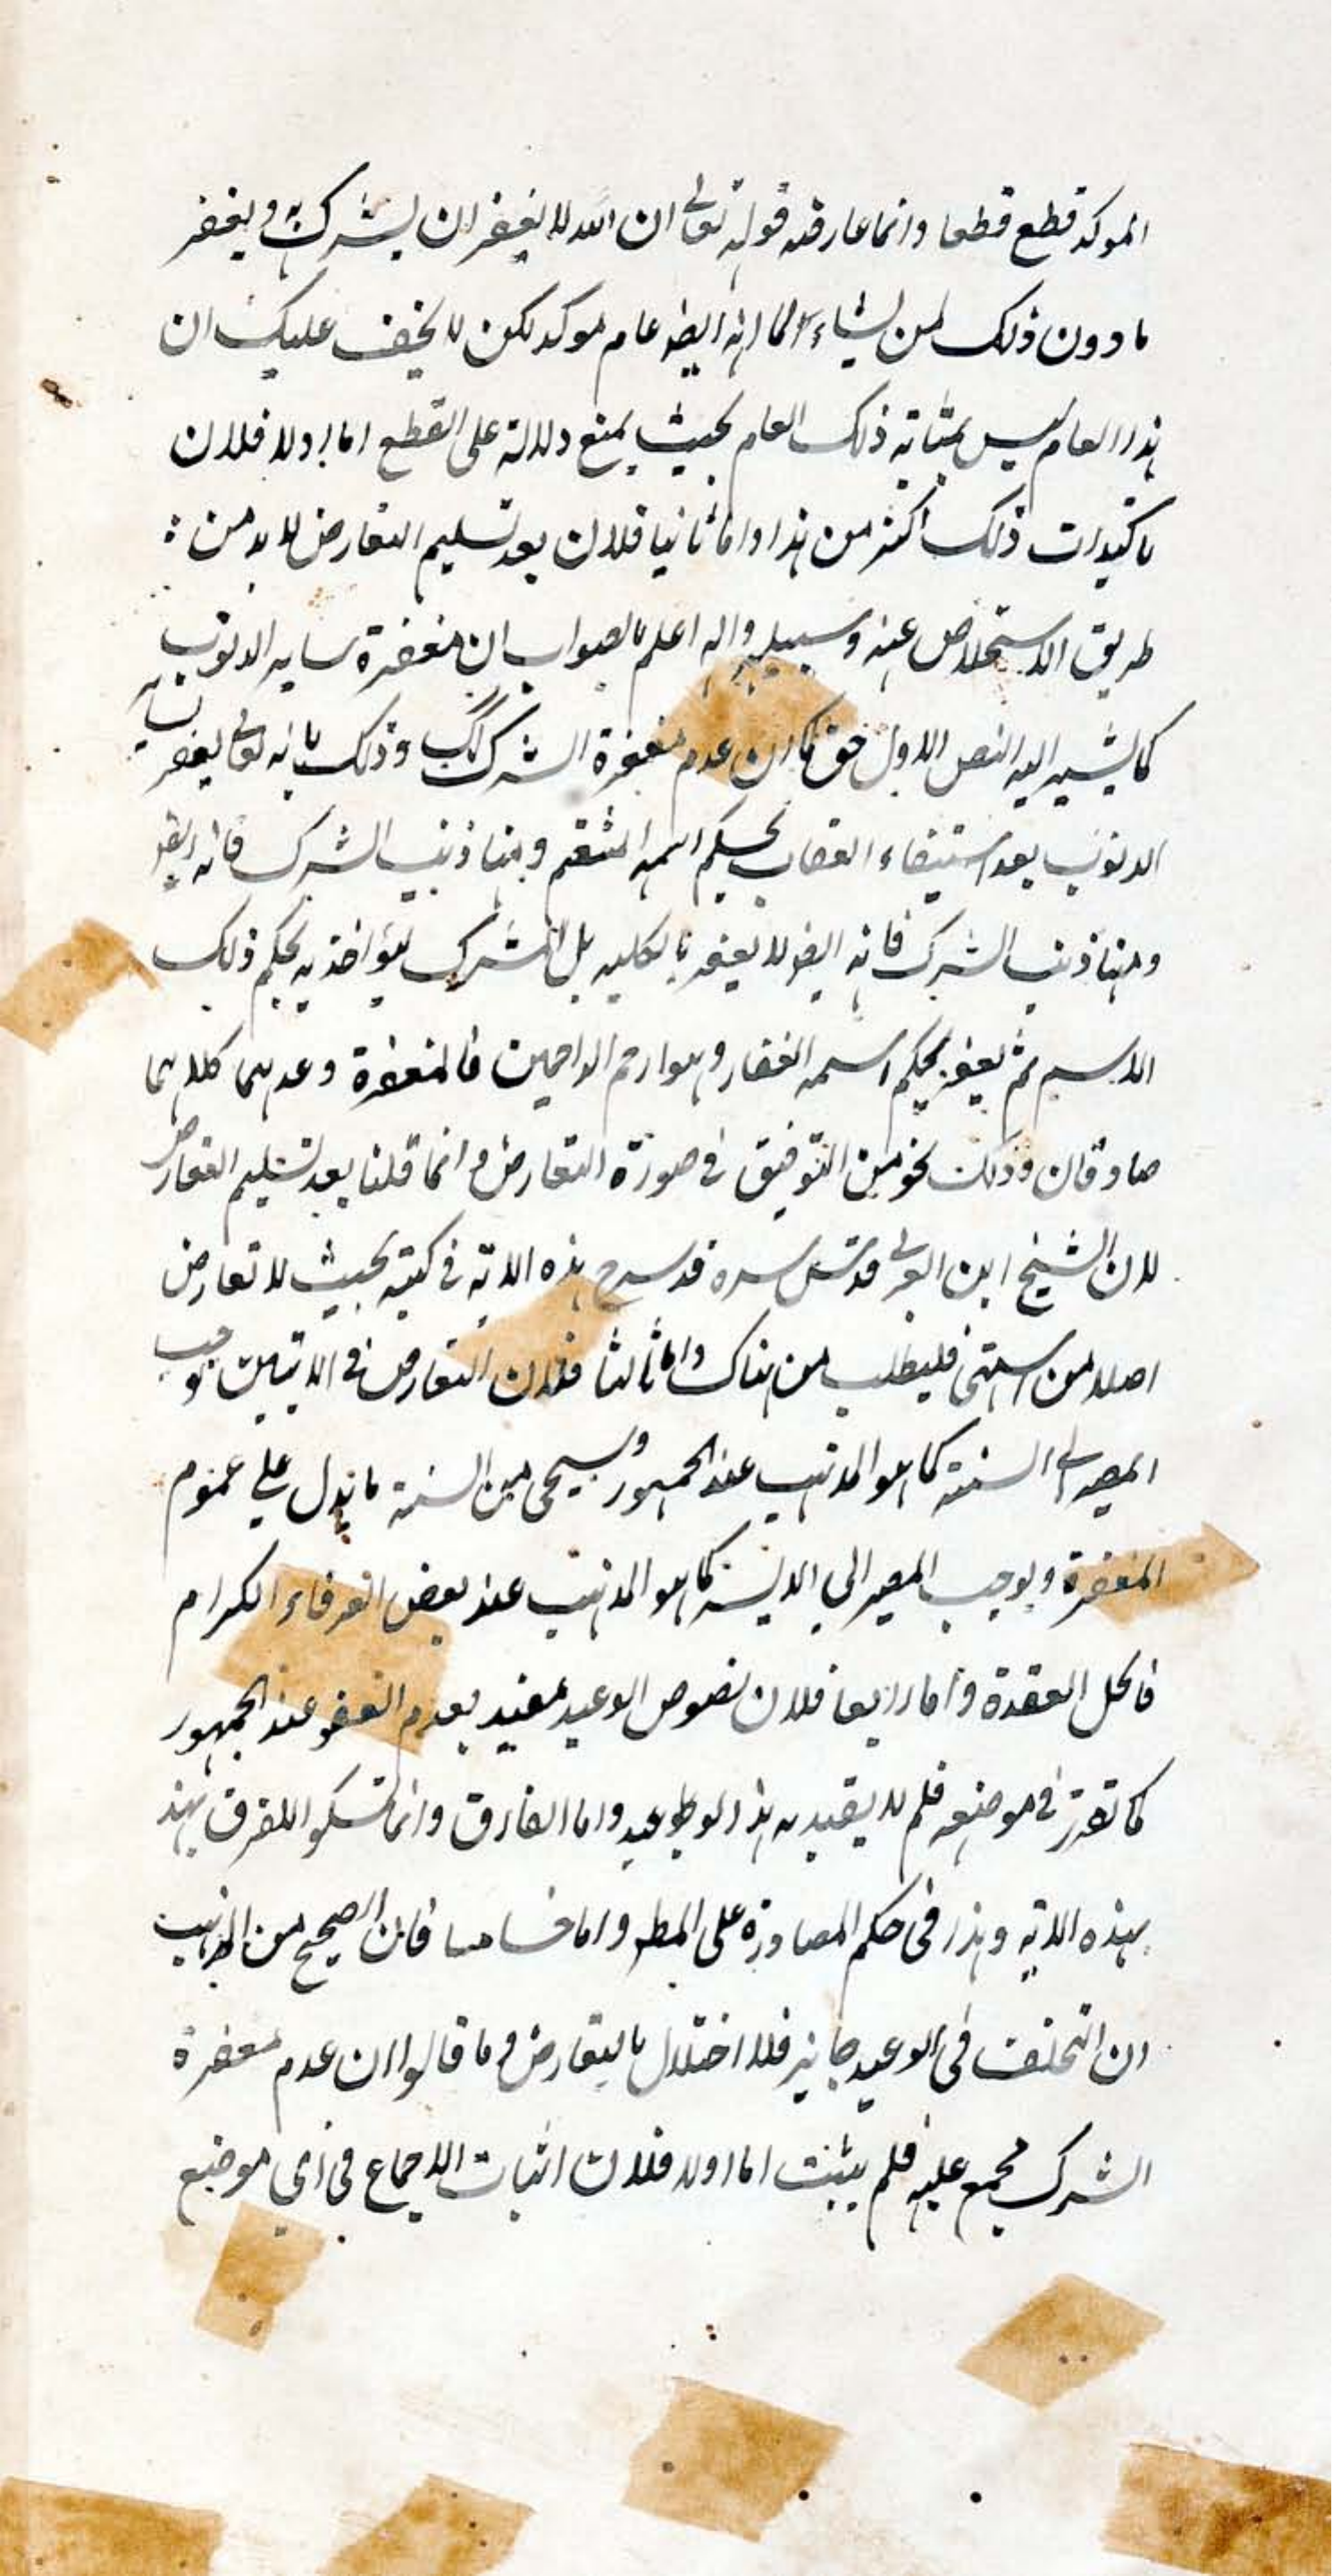 الموکد قطع قطعا وانما عارضه قوله تعالی ان الله لا یغفر ان یشرک به و یغفر
ما دون ذلک لمن یشاء لما انه ایضا عام موکد لکن لا یخفی علیک ان
هذا العام لیس بمثابة ذلک العام بحیث یمنع دلالته علی القطع اما اولا فلان
تاکیدات ذلک اکثر من هذا واما ثانیا فلان بعد تسلیم التعارض لا بد من
طریق الاستخلاص عنه وسبیله واله اعلم بالصواب ان مغفرة سایر الذنوب
کما یشیر الیه النص الاول حق کما ان عدم مغفرة الشرک کک وذلک بانه تعالی یغفر سایر
الذنوب بعد استیفاء العقاب بحکم اسمه المنتقم ومنها ذنب الشرک فانه ایضا
ومنها ذنب الشرک فانه ایضا لا یغفر بالکلیه بل المشرک یؤاخذ به بحکم ذلک
الاسم ثم یغفر بحکم اسمه الغفار وهو ارحم الراحمین فالمغفرة وعدمها کلاهما
صادقان وذلک نحو من التوفیق فی صورة التعارض وانما قلنا بعد تسلیم التعارض
لان الشیخ ابن العربی قدس سره قد سرح هذه الایة فی کتبه بحیث لا تعارض
اصلا من اشتهی فلیطلب من هناک واما ثالثا فلان التعارض فی الایتین توجب
المصیر الی السنة کما هو المذهب عند الجمهور وسیجی من السنة ما یدل علی عموم
المغفرة ویوجب المصیر الی کما هو المذهب عند بعض العرفاء الکرام
فانحل العقدة واما رابعا فلان نصوص الوعید مقید بعدم العفو عند الجمهور
کما تقرر فی موضعه فلم لا یقید به هذا الوعید واما الفارق وانما تمسکوا للفرق بهذ
بهذه الایة وهذا فی حکم المصادرة علی المط واما خامسا فان الصحیح من المذهب
ان التخلف فی الوعید جایز فلا اختلال بالتعارض وما قالوا ان عدم مغفرة
الشرک مجمع علیه فلم یثبت اما اولا فلان اثبات الاجماع فی ای موضع